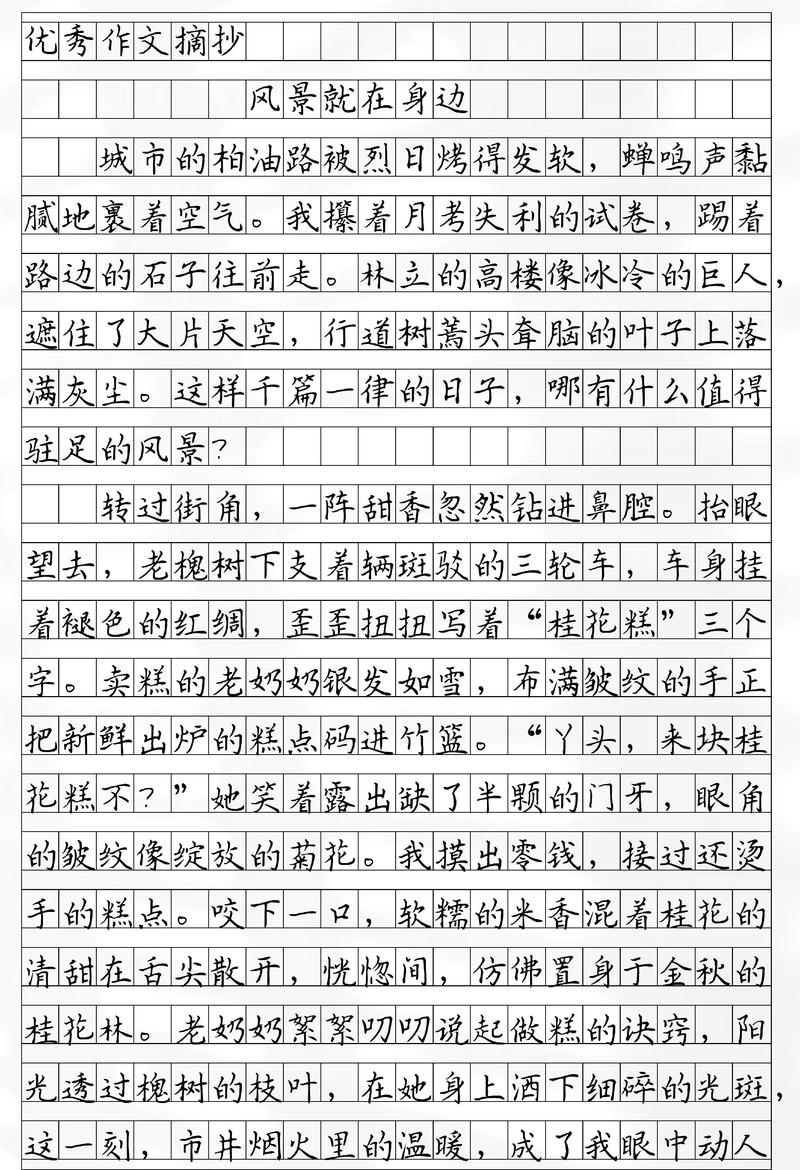 优秀作文摘抄
风景就在身边
城市的柏油路被烈日烤得发软，蝉鸣声黏
腻地裹着空气。我攥着月考失利的试卷，踢着
路边的石子往前走。林立的高楼像冰冷的巨人，
遮住了大片天空，行道树蔫头耷脑的叶子上落
满灰尘。这样千篇一律的日子，哪有什么值得
驻足的风景？
转过街角，一阵甜香忽然钻进鼻腔。抬眼
望去，老槐树下支着辆斑驳的三轮车，车身挂
着褪色的红绸，歪歪扭扭写着“桂花糕”三个
字。卖糕的老奶奶银发如雪，布满皱纹的手正
把新鲜出炉的糕点码进竹篮。“丫头，来块桂
花糕不？”她笑着露出缺了半颗的门牙，眼角
的皱纹像绽放的菊花。我摸出零钱，接过还烫
手的糕点。咬下一口，软糯的米香混着桂花的
清甜在舌尖散开，恍惚间，仿佛置身于金秋的
桂花林。老奶奶絮絮叨叨说起做糕的诀窍，阳
光透过槐树的枝叶，在她身上洒下细碎的光斑，
这一刻，市井烟火里的温暖，成了我眼中动人